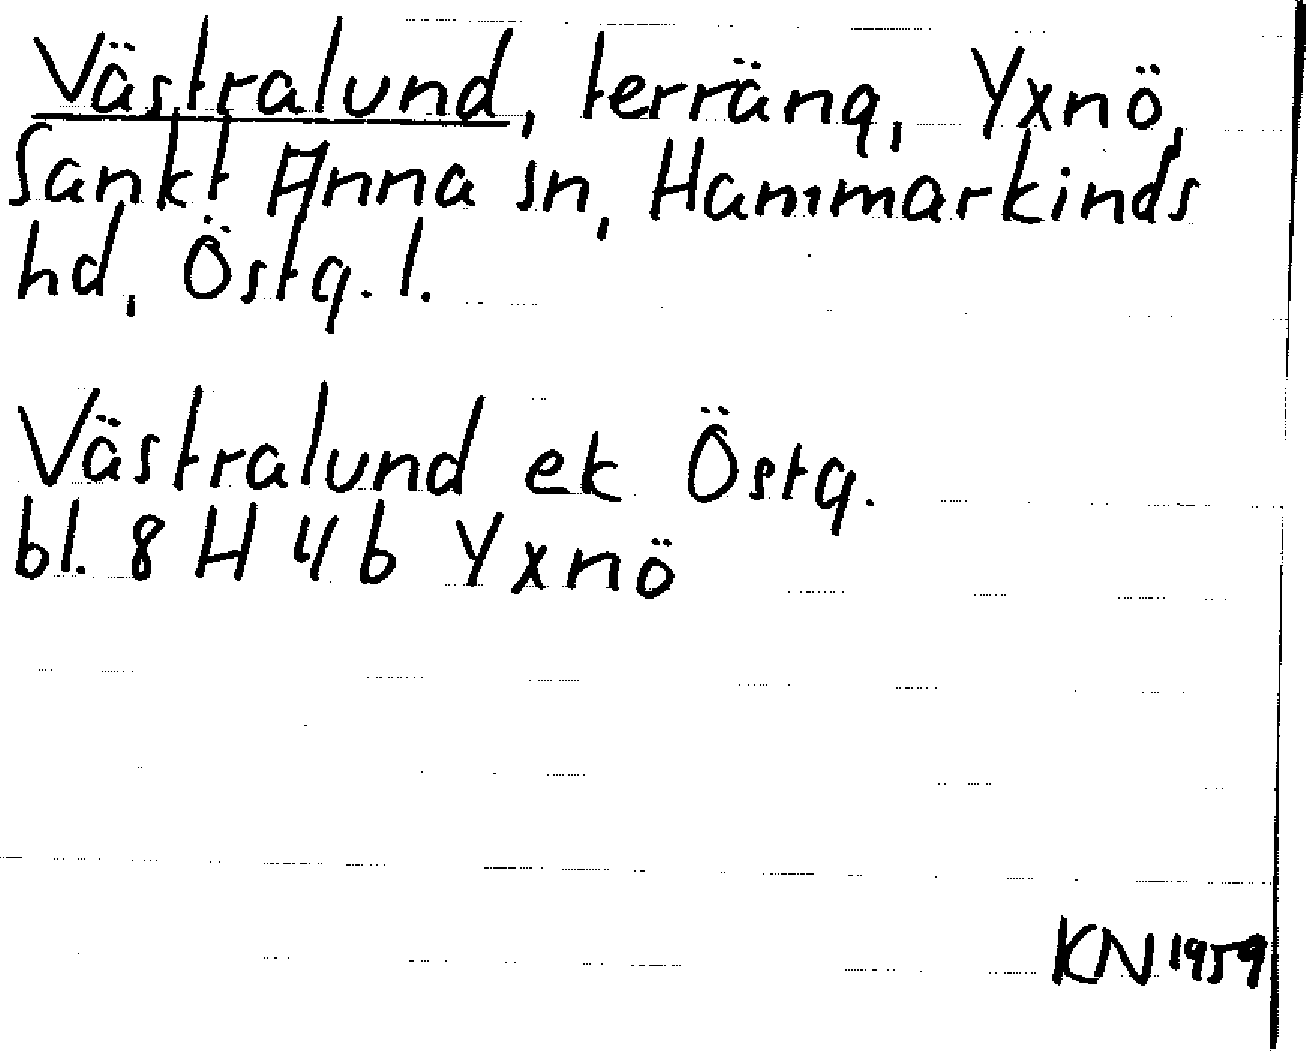 Västralund, terräng, Yxnö,
Sankt Anna sn, Hammarkinds
hd, Östg. l.
Västralund ek Östg.
bl. 8 H 4 b Yxnö
KN 1959